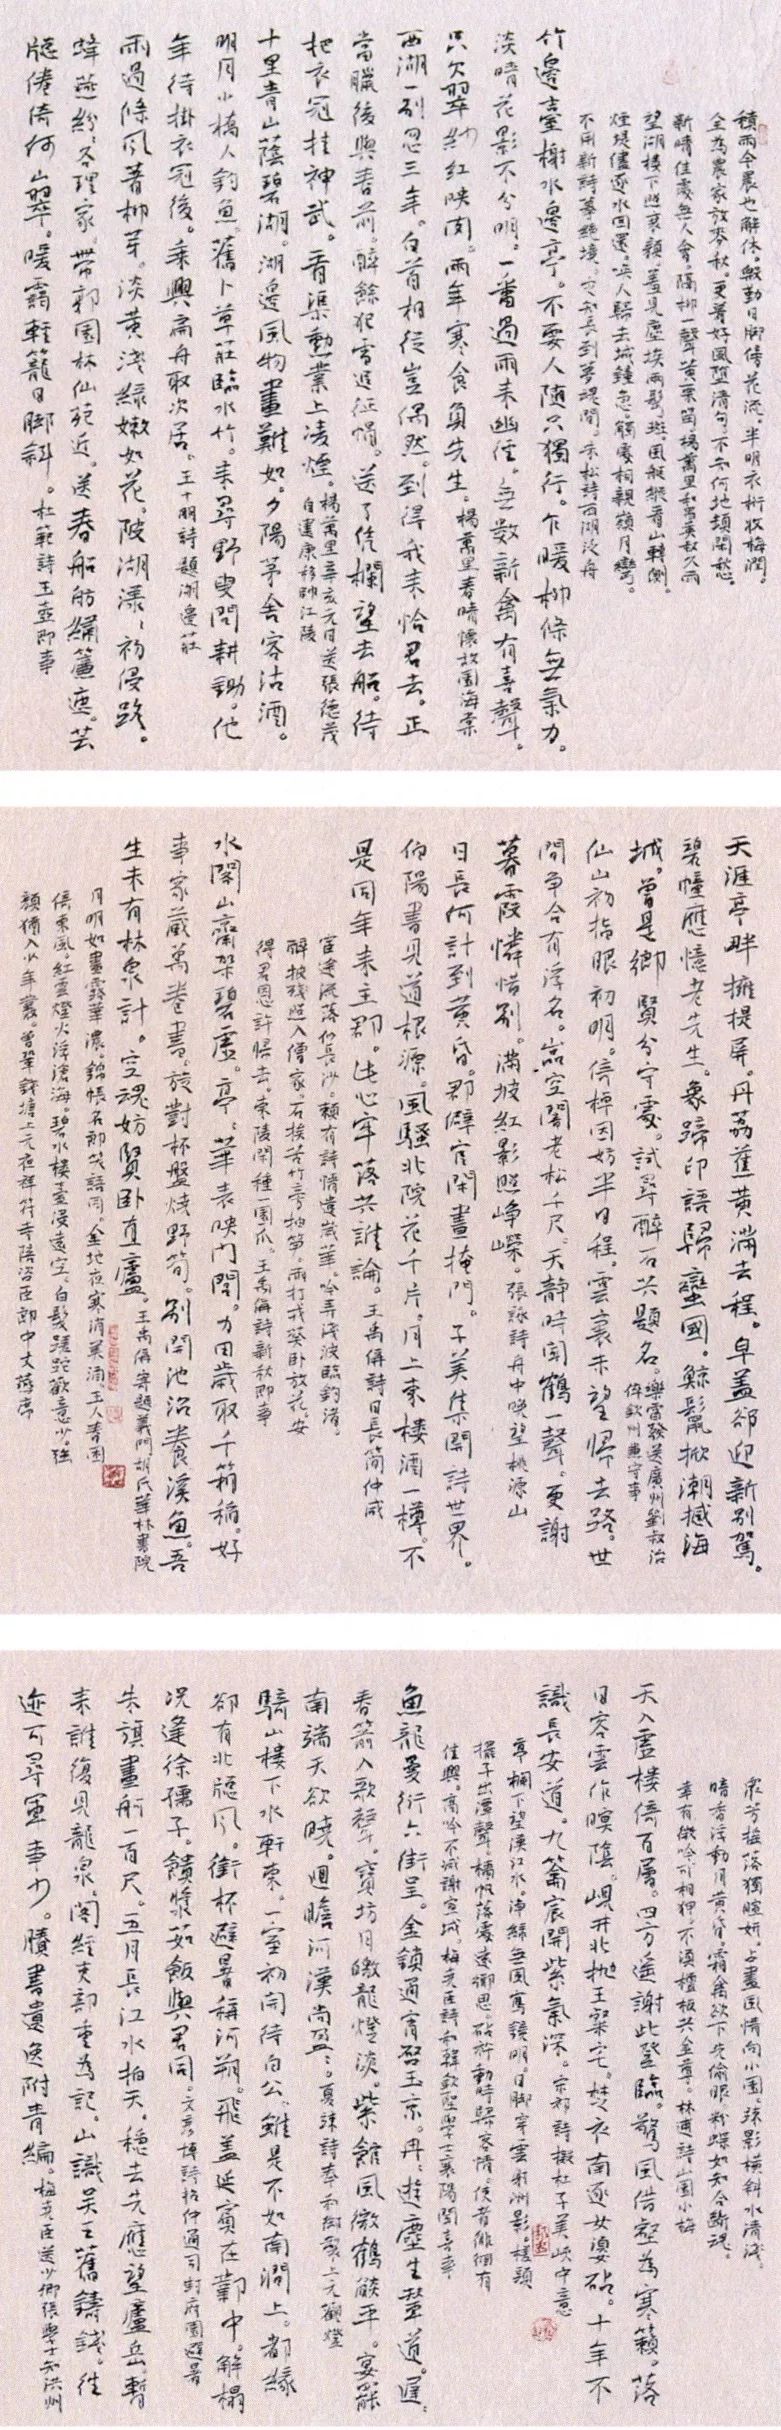 積雨今晨也解休。殷勤日腳傍花流。半明衣桁收梅潤。
全為農家放麥秋。更着好風墮清句。不知何地頓閑愁。
新晴佳處無人會。隔柳一聲黃栗留。楊萬里和英叔久雨
望湖樓下照衰顏。羞見塵埃兩鬢斑。風艇縱看山轉側。
煙堤儘逐水回還。喚人歸去城鐘急。觸處相親嶺月彎。
不用新詩摹絕境。也知長到夢魂間。朱松詩西湖泛舟
竹邊臺榭水邊亭。不要人隨只獨行。乍暖柳條無氣力。
淡晴花影不分明。一番過雨來幽徑。無數新禽有喜聲。
只欠翠紗紅映肉。兩年寒食負先生。楊萬里春晴懷故園海棠
西湖一別忽三年。白首相從豈偶然。到得我來恰君去。正
當臘後與春前。醉餘犯雪追征帽。送了凭欄望去船。待
把衣冠挂神武。看渠勳業上凌煙。楊萬里辛亥元日送張德茂
自建康移帥江陵
十里青山蔭碧湖。湖邊風物畫難如。夕陽茅舍客沽酒。
明月小橋人釣魚。舊卜草莊臨水竹。來尋野叟問耕鋤。他
年待掛衣冠後。乘興扁舟取次居。王十朋詩題湖邊莊
雨過條風著柳芽。淡黃淺綠嫩如花。陂湖漾漾初侵路。
蜂燕紛紛各理家。帶郭園林仙苑近。送春船舫繡簾遮。芸
牕倦倚何山翠。暖靄輕籠日腳斜。杜範詩玉壺即事
天涯亭畔擁提屏。丹荔蕉黃滿去程。皁蓋郤迎新別駕。
碧幢應憶老先生。象蹄印語歸蠻國。鯨鬣掀潮撼海
城。曾是鄉賢分守處。試尋醉石共題名。樂雷發送廣州劉叔治
倅欽州兼守事
仙山初指眼初明。倚棹因妨半日程。雲裏未望歸去路。世
間爭合有浮名。嵓空閣老松千尺。天靜時聞鶴一聲。更謝
暮霞憐惜別。滿坡紅影照崢嶸。張詠詩舟中晚望桃源山
日長何計到黃昏。郡僻官閑晝掩門。子美集開詩世界。
伯陽書見道根源。風騷北院花千片。月上東樓酒一樽。不
是同年來主郡。此心牢落共誰論。王禹偁詩日長簡仲咸
宦途流落似長沙。賴有詩情遣歲華。吟弄淺波臨釣渚。
醉披殘照入僧家。石挨苦竹旁抽筍。雨打戎葵臥放花。安
得君恩許歸去。東陵閑種一園瓜。王禹偁詩新秋即事
水閣山齋架碧虛。亭亭華表映門閭。力田歲取千箱稻。好
事家藏萬卷書。旋對杯盤燒野筍。別開池沼養溪魚。吾
生未有林泉計。空愧妨賢臥直廬。王禹偁寄題義門胡氏華林書院
月明如晝露華濃。錦帳名郎笑語同。金地夜寒消美酒。玉人春困
倚東風。紅雲燈火浮滄海。碧水樓臺浸遠空。白髮蹉跎歡意少。強
顏猶入少年叢。曾鞏錢塘上元夜祥符寺陪咨臣郎中丈燕席
眾芳搖落獨暄妍。占盡風情向小園。疎影橫斜水清淺。
暗香浮動月黃昏。霜禽欲下先偷眼。粉蝶如知合斷魂。
幸有微吟可相狎。不須檀板共金尊。林逋詩山園小梅
天入虛樓倚百層。四方遙謝此登臨。驚風借壑為寒籟。落
日容雲作暝陰。峴井北拋王粲宅。楚衣南逐女嬃砧。十年不
識長安道。九籥宸開紫氣深。宋祁詩擬杜子美峽中意
亭欄下望漢江水。淨綠無風寫鏡明。日腳穿雲射洲影。槎頭
擺子出潭聲。橘帆落處遠鄉思。砧杵動時歸客情。使者徘徊有
佳興。高吟不減謝宣城。梅堯臣詩和韓欽聖學士襄陽聞喜亭
魚龍曼衍六街呈。金鎖通宵啓玉京。冉冉遊塵生輦道。遲遲
春箭入歌聲。寶坊月皦龍燈淡。紫館風微鶴燄平。宴罷
南端天欲曉。迴瞻河漢尚盈盈。夏竦詩奉和御製上元觀燈
騎山樓下水軒東。一室初開待白公。雖是不如南澗上。都緣
卻有北牕風。銜杯避暑稱河朔。飛蓋延賓在鄴中。解榻
況逢徐孺子。饋漿茹飯與君同。文彥博詩招仲通司封府園避暑
朱旗畫舸一百尺。五月長江水拍天。穩去先應望廬岳。暫
來誰復見龍泉。閣經吏部重為記。山識吳王舊鑄錢。往
迹可尋軍事少。賸書遺逸附青編。梅堯臣送少卿張學士知洪州